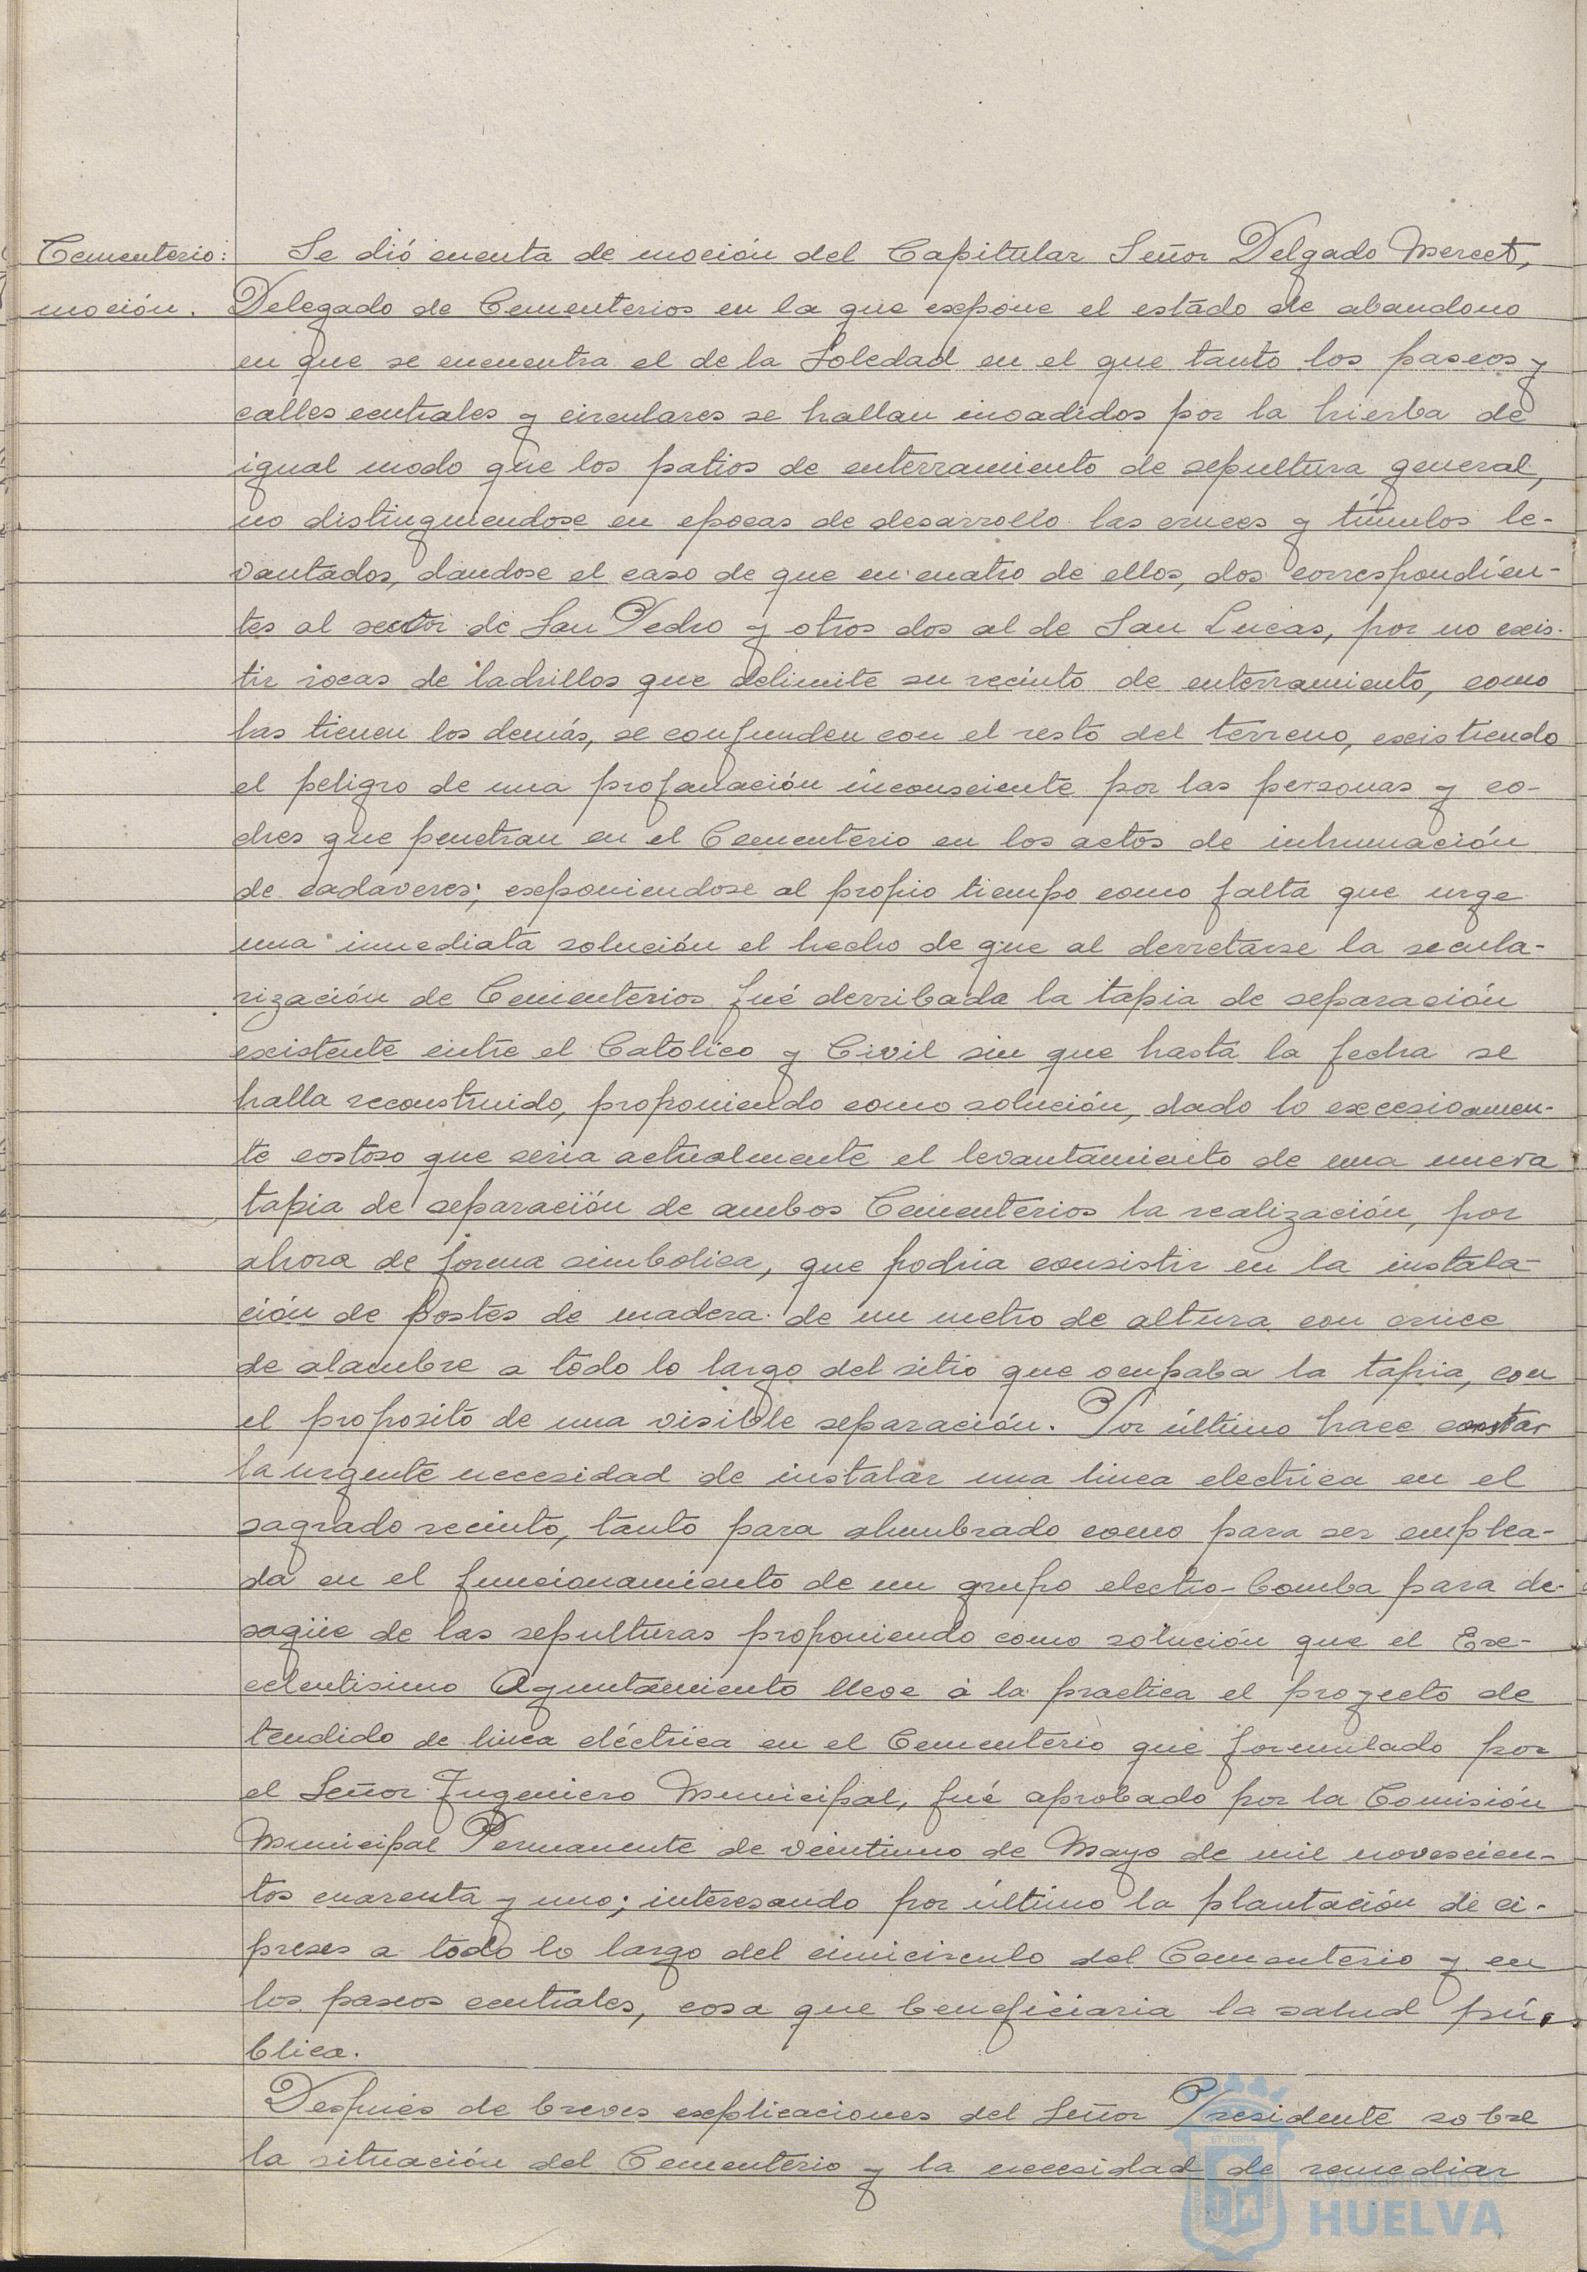 Cementerio:
moción.
Se dió cuenta de moción del Capitular Señor Delgado Mercet,
Delegado de Cementerios en la que expone el estado de abandono
en que se encuentra el de la Soledad en el que tanto los paseos y
calles centrales y circulares se hallan invadidos por la hierba de
igual modo que los patios de enterramiento de sepultura general,
no distinguiendose en epocas de desarrollo las cruces y túmulos le-
vantados, dandose el caso de que en cuatro de ellos, dos correspondien-
tes al sector de San Pedro y otros dos al de San Lucas, por no exis-
tir rocas de ladrillos que delimite su recinto de enterramiento, como
las tienen los demás, se confunden con el resto del terreno, existiendo
el peligro de una profanación inconsciente por las personas y co-
ches que penetran en el Cementerio en los actos de inhumación
de cadaveres; exponiendose al propio tiempo como falta que urge
una inmediata solución el hecho de que al derretarse la secula-
rización de Cementerios fué derribada la tapia de separación
existente entre el Católico y Civil sin que hasta la fecha se
halla reconstruido, proponiendo como solución, dado lo excesivamen-
te costoso que seria actualmente el levantamiento de una nueva
tapia de separación de ambos Cementerios la realización, por
ahora de forma simbolica, que podria consistir en la instala-
ción de postes de madera de un metro de altura con cruce
de alambre a todo lo largo del sitio que ocupaba la tapia, con
el proposito de una visible separación. Por último hace constar
la urgente necesidad de instalar una linea electrica en el
sagrado recinto, tanto para alumbrado como para ser emplea-
da en el funcionamiento de un grupo electro-bomba para de-
sagüe de las sepulturas proponiendo como solución que el Exc-
celentisimo Ayuntamiento lleve á la practica el proyecto de
tendido de linea eléctrica en el Cementerio que formulado por
el Señor Ingeniero Municipal, fué aprobado por la Comisión
Municipal Permanente de veintiuno de Mayo de mil novescien-
tos cuarenta y uno; interesando por último la plantación de ci-
preses a todo lo largo del cimicirculo del Cementerio y en
los paseos centrales, cosa que beneficiaria la salud pú-
blica.
Después de breves explicaciones del Señor Presidente sobre
la situación del Cementerio y la necesidad de remediar
Ayuntamiento de
HUELVA